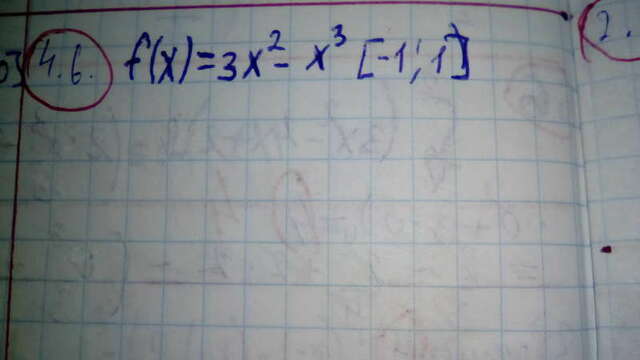 4.6. f(x)=3x²-x³ [-1; 1]
2.